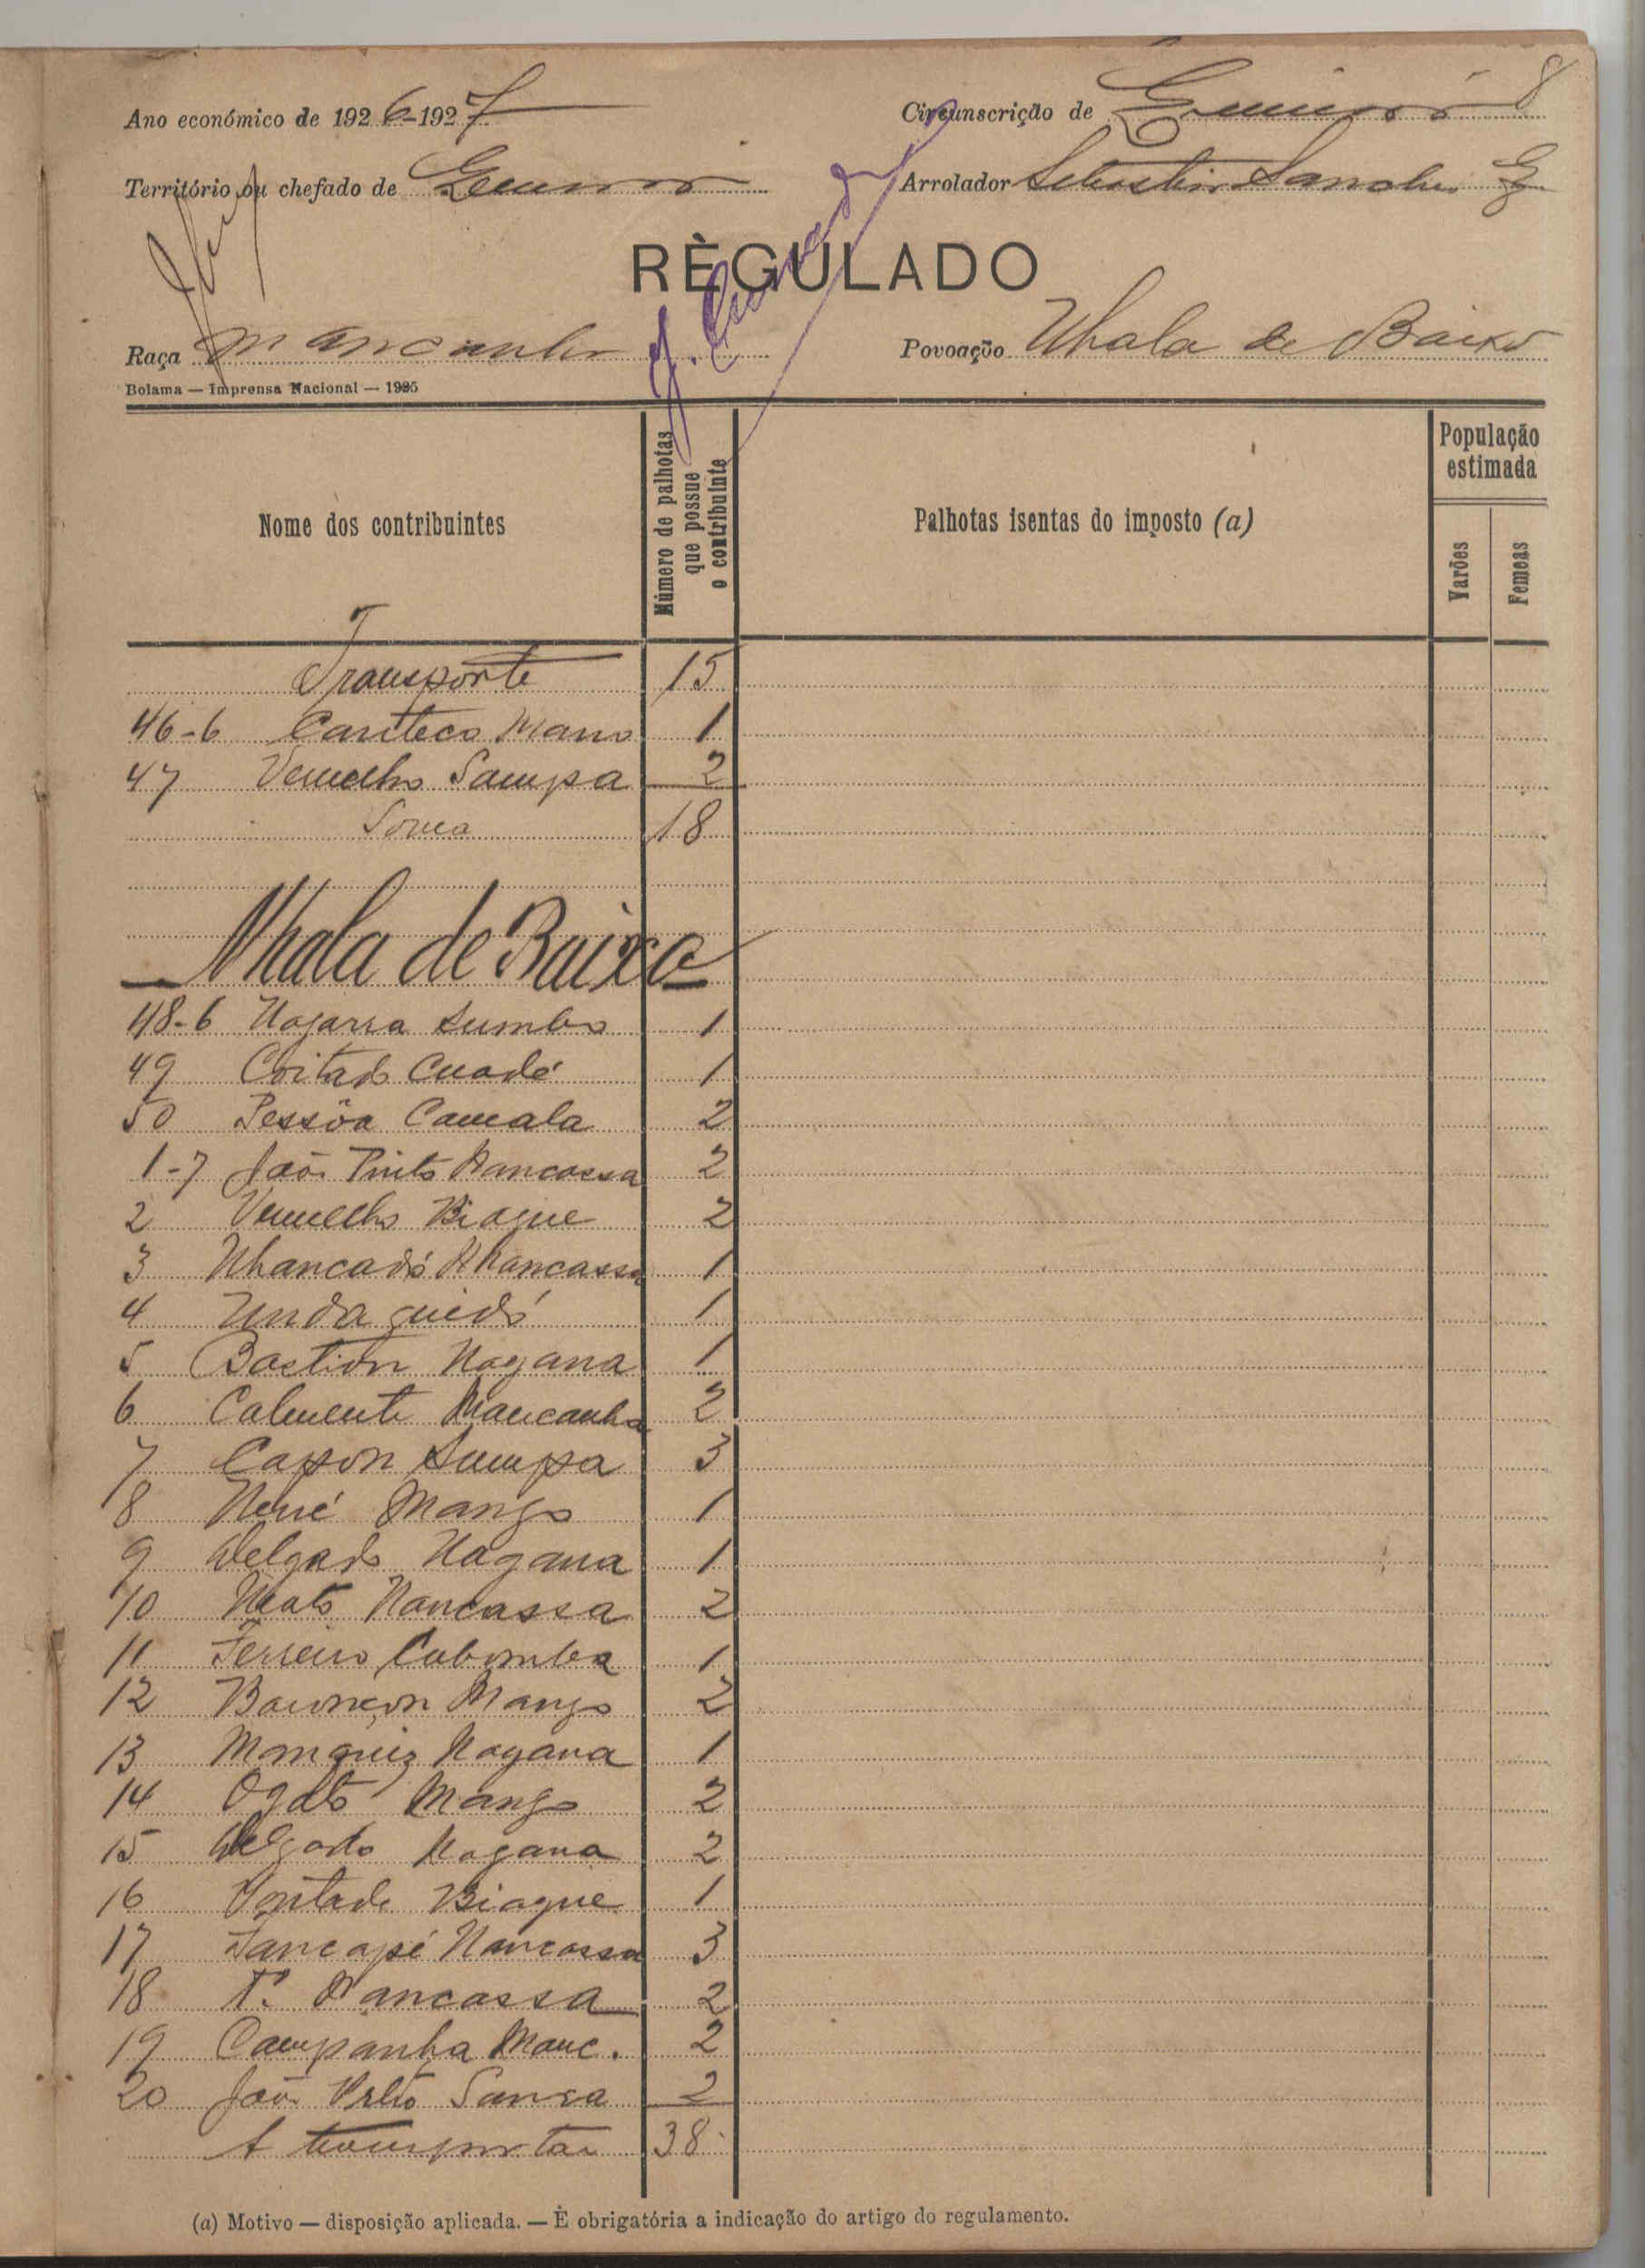 8
Ano económico de 1926-1927
Circunscrição de
Território ou chefado de
Arrolador Sebastião Sanches
RÈGULADO
Raça Mancanha
Povoação Nhala de Baixo
Bolama — Imprensa Nacional — 1925
Nome dos contribuintes
Número de palhotas que possue o contribuinte
Palhotas isentas do imposto (a)
População estimada
Varões
Femeas
Transporte 15
46-6 Cariteco Mano 1
47 Vermelho Sampa 2
Soma 18
Nhala de Baixo
48-6 Nagana Sumbo 1
49 Coitado Cuadé 1
50 Pessôa Camala 2
1-7 João Pinto Nancassa 2
2 Vermelho Biague 2
3 Nhancadó Nhancassa 1
4 Unda quidó 1
5 Bastion Nagana 1
6 Calmente Mancanha 2
7 Capon Sampa 3
8 Nené Mango 1
9 Delgado Nagana 1
10 Nancassa 2
11 Ferreiro Cabomba 1
12 Mango 2
13 Marquiz Nagana 1
14 Ogato Mango 2
15 Delgado Nagana 2
16 Vontade Biague 1
17 Nancassa 3
18 Nancassa 2
19 Campanha Manc. 2
20 João Sanca 2
A transportar 38
(a) Motivo — disposição aplicada. — È obrigatória a indicação do artigo do regulamento.